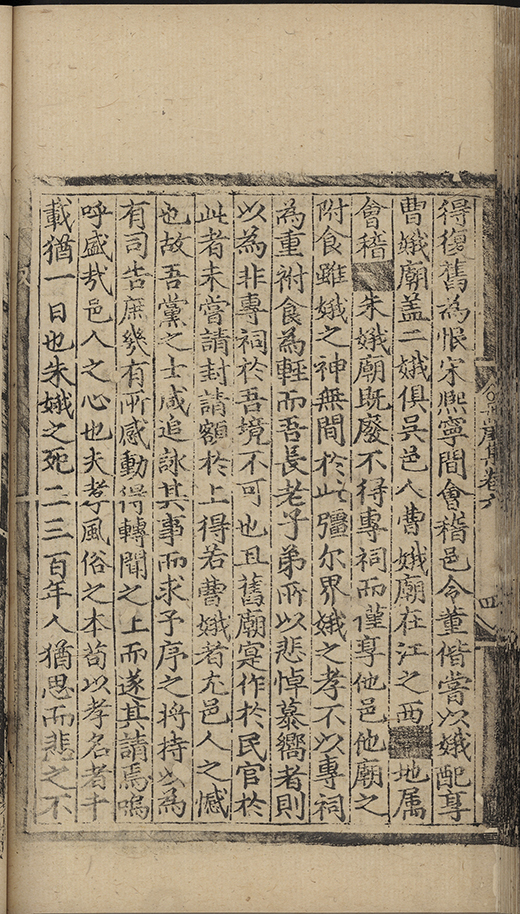 得復舊為恨宋熙寧間會稽邑令董偕嘗以娥配享
曹娥廟盖二娥俱吳邑人曹娥廟在江之西地属
會稽朱娥廟既廢不得專祠而僅享他邑他廟之
附食雖娥之神無間於此彊尔界娥之孝不以專祠
為重祔食為輊而吾長老子弟所以悲悼慕嚮者則
以為非專祠於吾境不可也且舊廟寔作於民官於
此者未嘗請封請額於上得若曹娥者尤邑人之憾
也故吾黨之士咸追詠其事而求予序之将持以為
有司告庶幾有所感動得轉聞之上而遂其請焉嗚
呼盛㢤邑人之心也夫孝風俗之本苟以孝名者千
載猶一日也朱娥之死二三百年人猶思而悲之不
卷六
四